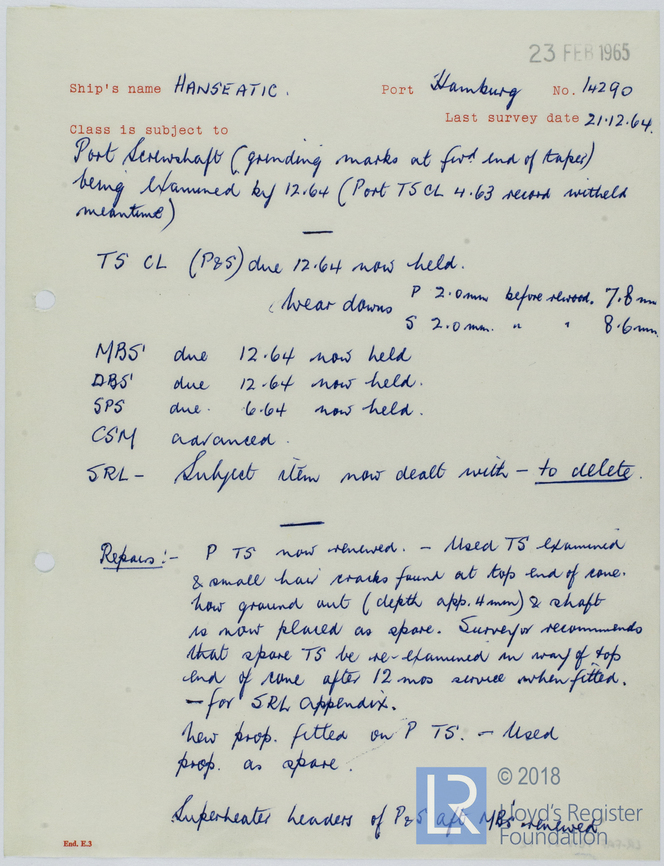 23 FEB 1965
Ship's name HANSEATIC. Port Hamburg No. 14290
Last survey date 21.12.64.
Class is subject to
Port Screwshaft (grinding marks at fwd end of taper)
being examined by 12.64 (Port TSCL 4.63 record witheld
meantime)
TS CL (P&S) due 12.64 now held.
Wear downs P 2.0mm before rewood. 7.8mm
S 2.0mm. " " 8.6mm.
MBS' due 12.64 now held
DBS' due 12.64 now held.
SPS due. 6.64 now held.
CSM advanced.
SRL - Subject item now dealt with - to delete.
Repairs:- P TS now renewed. - Used TS examined
& small hair cracks found at top end of cone.
now ground out (depth app. 4mm) & shaft
is now placed as spare. Surveyor recommends
that spare TS be re-examined in way of top
end of cone after 12 mos service when fitted.
- for SRL appendix.
New prop. fitted on P TS. - Used
prop. as spare.
Superheater headers of P&S aft MBS' renewed
End. E.3
LR
© 2018
Lloyd's Register
Foundation